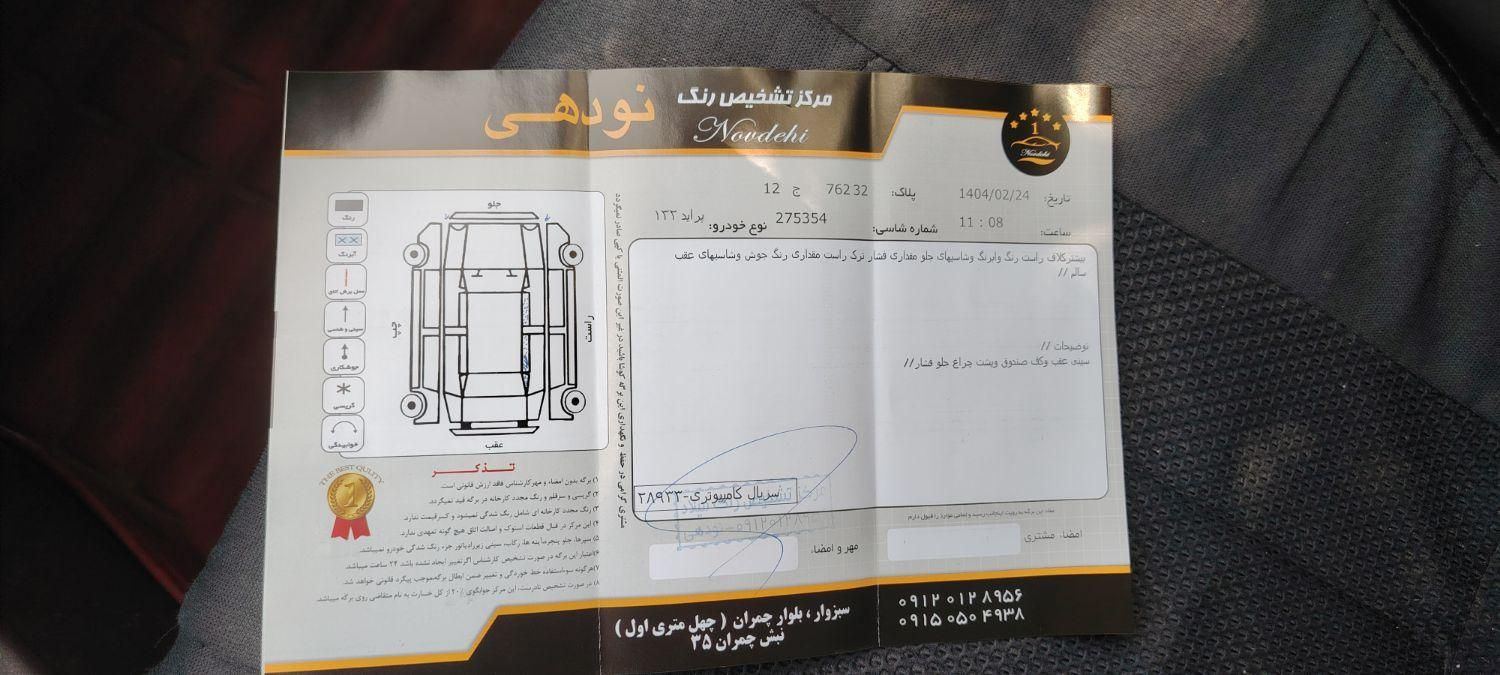 مرکز تشخیص رنگ
نودهی
Novdehi
1
Novdehi
تاریخ: 1404/02/24
پلاک: 76232 ج 12
ساعت: 11 : 08
شماره شاسی: 275354
نوع خودرو: پراید ۱۳۳
بیشترکلاف راست رنگ وابرنگ وشاسیهای جلو مقداری فشار ترک راست مقداری رنگ جوش وشاسیهای عقب
سالم //
توضیحات //
سینی عقب وکف صندوق وپشت چراغ جلو فشار//
سریال کامپیوتری-۲۸۹۳۳
مفاد این برگه به رویت اینجانب رسید و تمامی موارد را قبول دارم
امضاء مشتری
مهر و امضاء:
مشتری گرامی در حفظ و نگهداری این برگه کوشا باشید در غیر این صورت المثنی یا کپی صادر نمیگردد
جلو
چپ
راست
عقب
رنگ
آبرنگ
محل برش اتاق
سینی و شاسی
جوشکاری
گریسی
خوابیدگی
THE BEST QULITY
1
تذکر
۱) برگه بدون امضاء و مهرکارشناس فاقد ارزش قانونی است.
۲) گریسی و سرقلم و رنگ مجدد کارخانه در برگه قید نمیگردد.
۳) رنگ مجدد کارخانه ای شامل رنگ شدگی نمیشود و کسرقیمت ندارد.
۴) این مرکز در قبال قطعات استوک و اصالت اتاق هیچ گونه تعهدی ندارد.
۵) سپرها، جلو پنجره،آینه ها، رکاب، سینی زیررادیاتور جزء رنگ شدگی خودرو نمیباشد.
۶) اعتبار این برگه در صورت تشخیص کارشناس اگرتغییر ایجاد نشده باشد ۲۴ ساعت میباشد.
۷) هرگونه سوءاستفاده خط خوردگی و تغییر ضمن ابطال برگه،موجب پیگرد قانونی خواهد شد.
۸) در صورت تشخیص نادرست، این مرکز جوابگوی ۲۰٪ از کل خسارت به نام متقاضی روی برگه میباشد.
سبزوار ، بلوار چمران ( چهل متری اول )
نبش چمران ۳۵
۰۹۱۲ ۰۱۲ ۸۹۵۶
۰۹۱۵ ۰۵۰ ۴۹۳۸